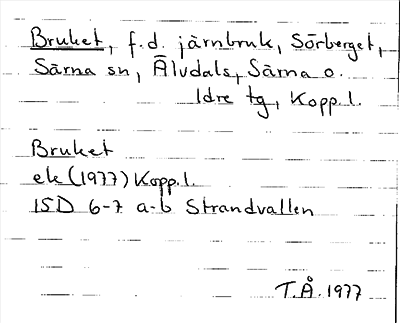 Bruket, f.d. järnbruk, Sörberget,
Särna sn, Älvdals, Särna o.
Idre tg, Kopp.l.
Bruket
ek (1977) Kopp.l.
15D 6-7 a-b Strandvallen
T.Å. 1977